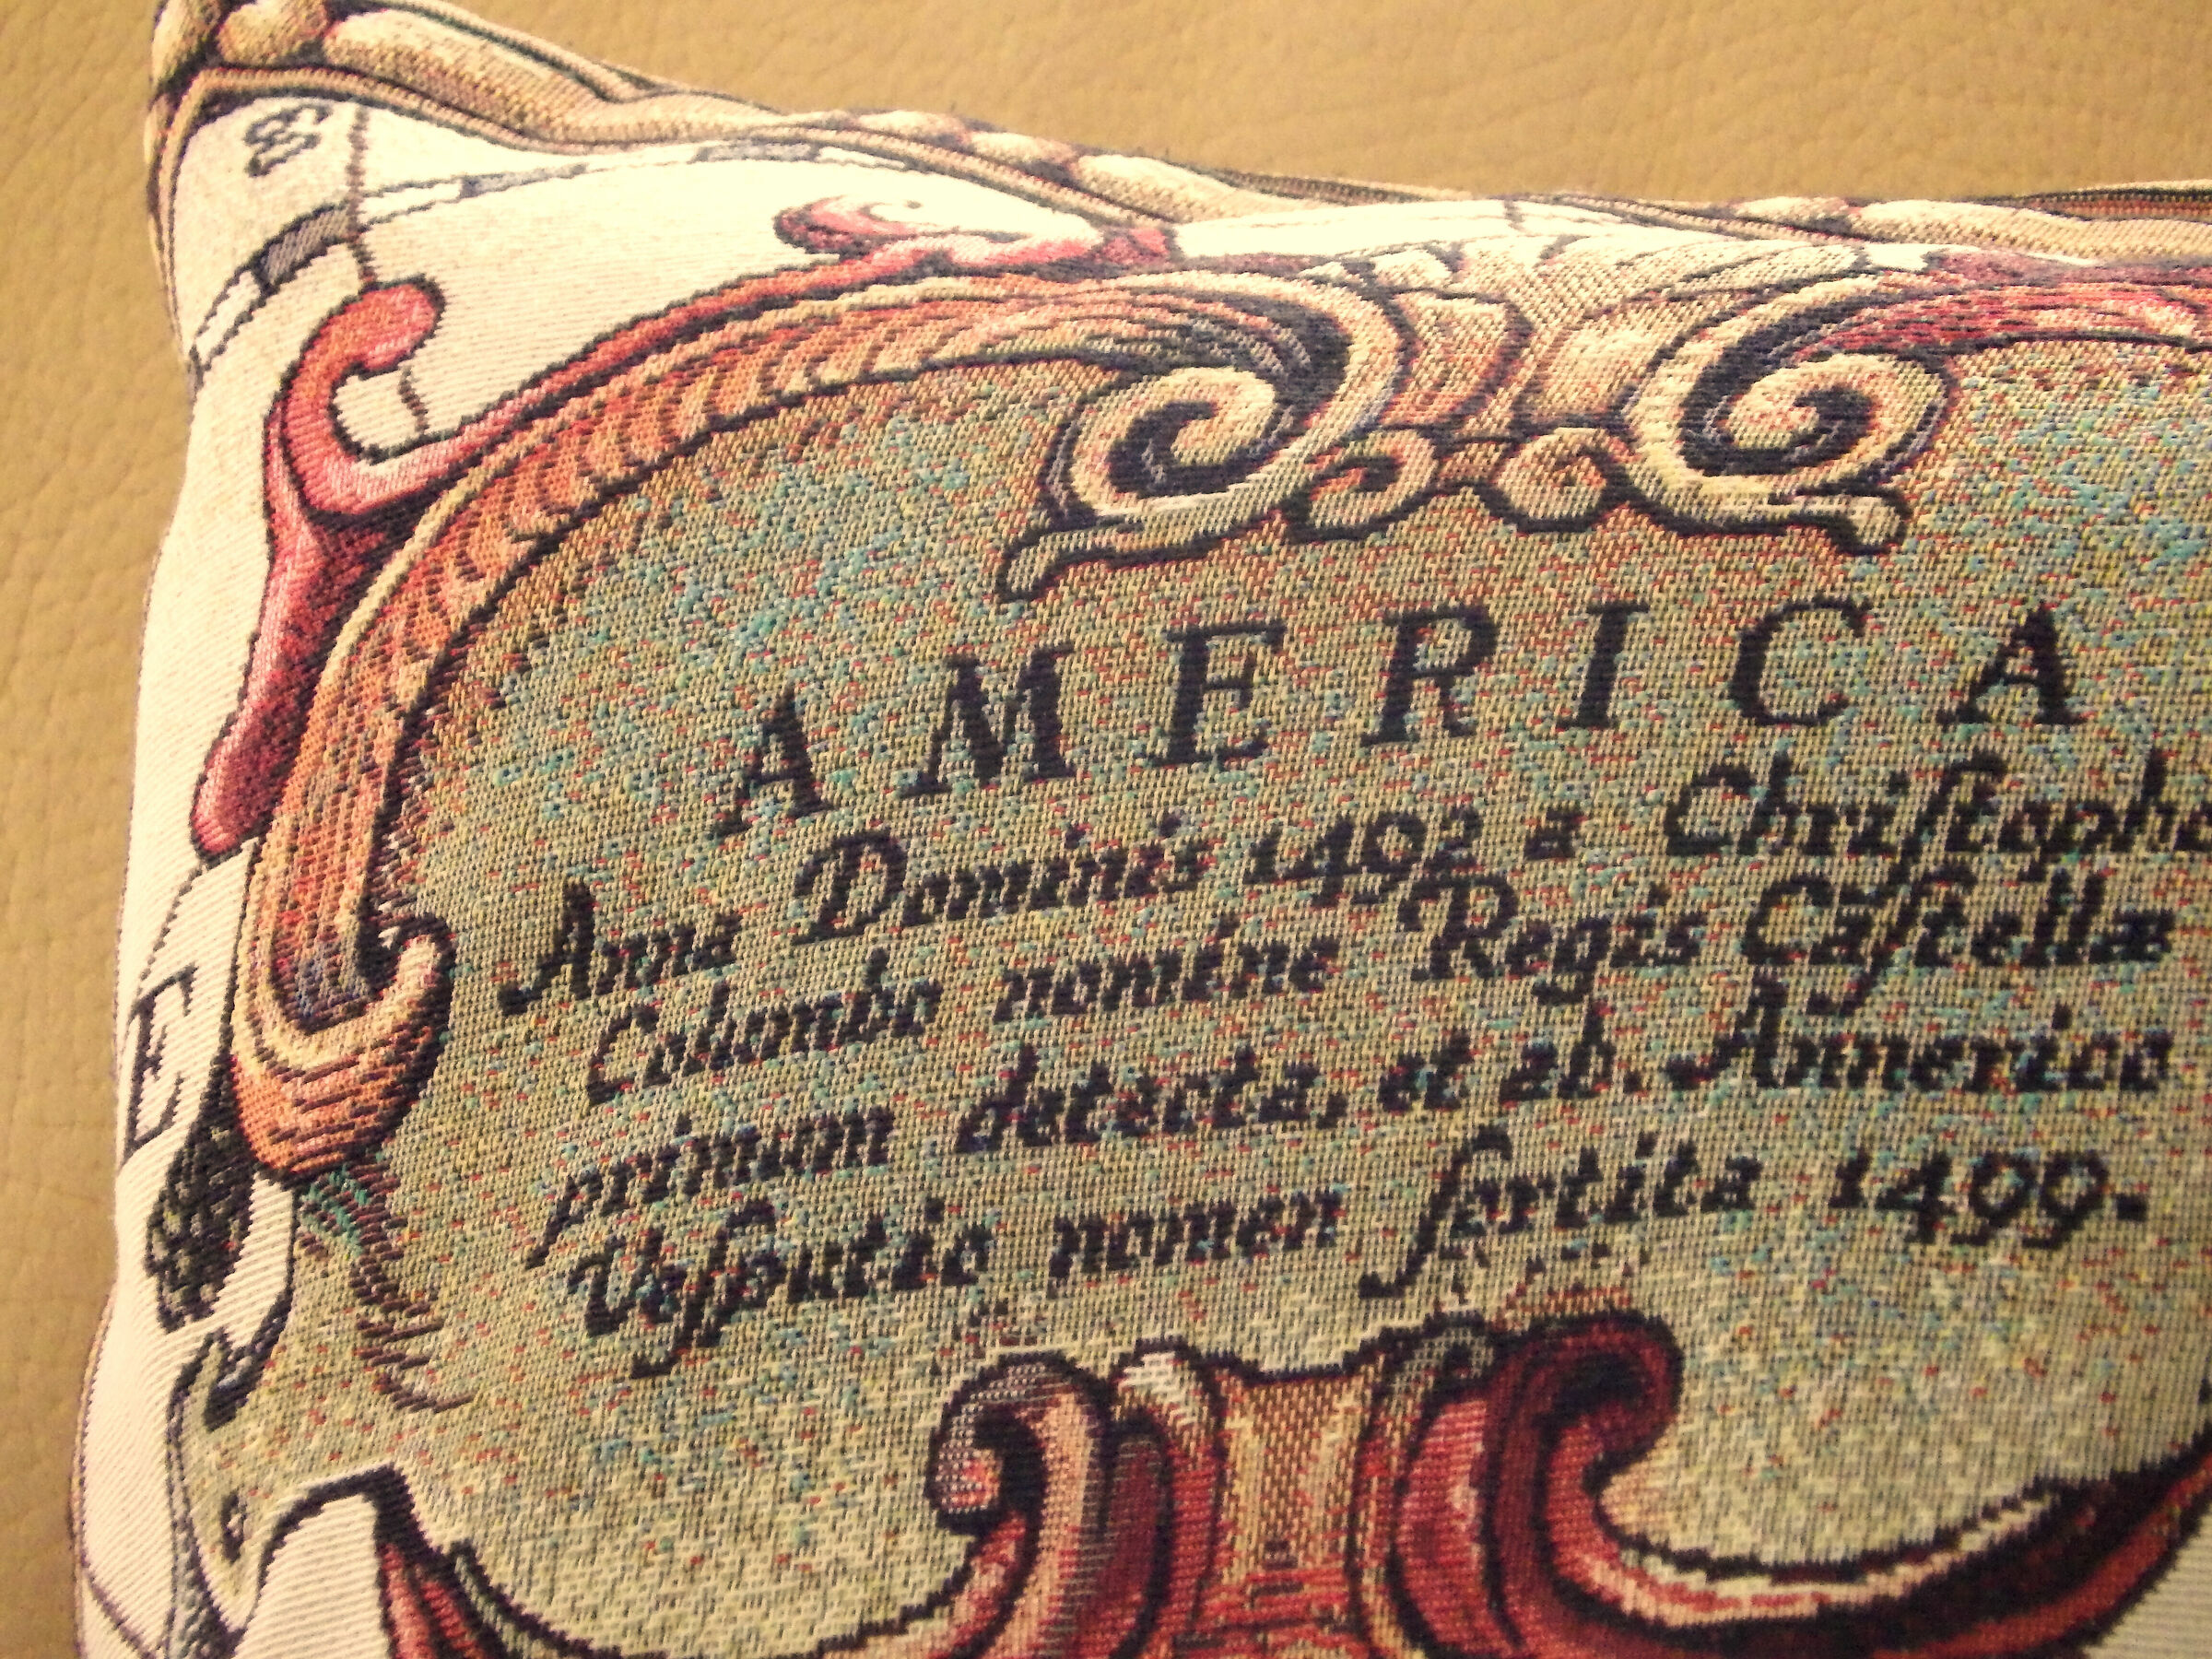 AMERICA
Anna Dominis 1492 a Chriſtoph
Colombo nomine Regis Caſtellæ
primum detecta, et ab. Americo
Veſputio nomen ſortita 1499.
E